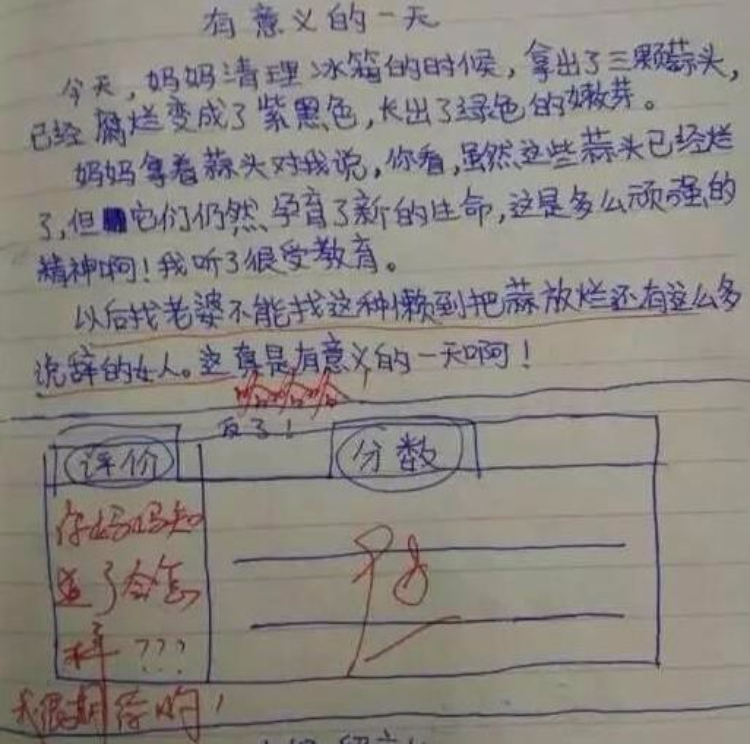 有意义的一天
今天，妈妈清理冰箱的时候，拿出了三颗蒜头，
已经腐烂变成了紫黑色，长出了绿色的嫩芽。
妈妈拿着蒜头对我说，你看，虽然这些蒜头已经烂
了，但它们仍然孕育了新的生命，这是多么顽强的
精神啊！我听了很受教育。
以后找老婆不能找这种懒到把蒜放烂还有这么多
说辞的女人。这真是有意义的一天啊！
哈哈哈
反了！
评价
分数
你妈妈知
道了会怎
样？？？
我很期待哟！
98